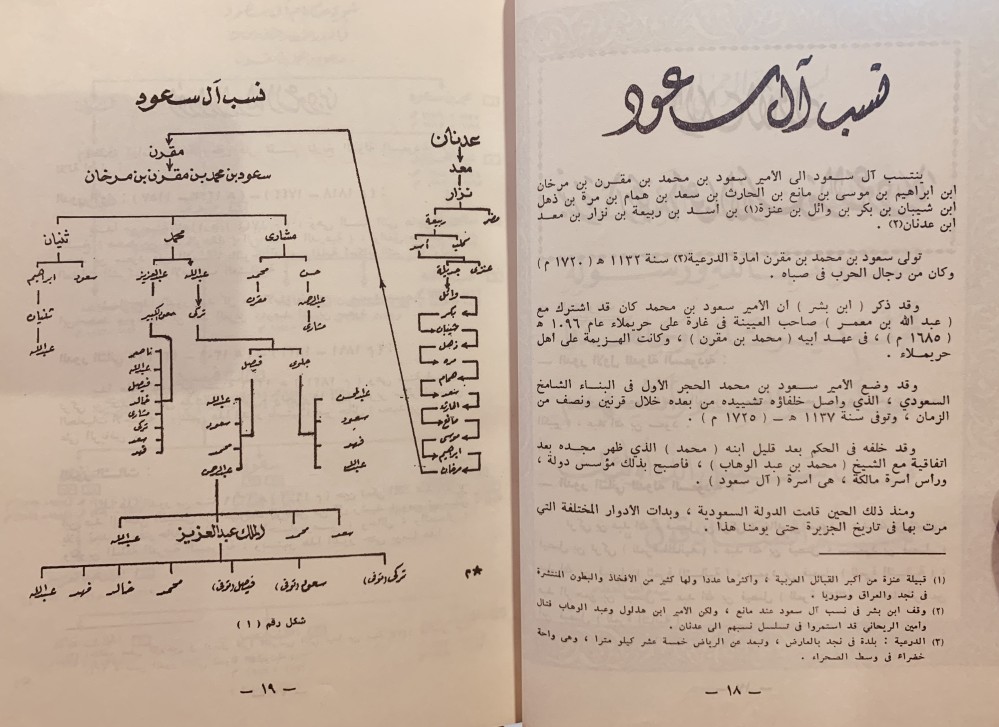 نسب آل سعود
ينتسب آل سعود الى الأمير سعود بن محمد بن مقرن بن مرخان
ابن ابراهيم بن موسى بن مانع بن الحارث بن سعد بن همام بن مرة بن ذهل
ابن شيبان بن بكر بن وائل بن عنزة(١) بن أسد بن ربيعة بن نزار بن معد
ابن عدنان(٢) .
تولى سعود بن محمد بن مقرن امارة الدرعية(٣) سنة ١١٣٢ ه ( ١٧٢٠ م )
وكان من رجال الحرب فى صباه .
وقد ذكر ( ابن بشر ) أن الأمير سعود بن محمد كان قد اشترك مع
( عبد الله بن معمر ) صاحب العيينة فى غارة على حريملاء عام ١٠٩٦ ه
( ١٦٨٥ م ) ، فى عهد أبيه ( محمد بن مقرن ) ، وكانت الهزيمة على أهل
حريملاء .
وقد وضع الأمير سعود بن محمد الحجر الاول فى البناء الشامخ
السعودي ، الذي واصل خلفاؤه تشييده من بعده خلال قرنين ونصف من
الزمان ، وتوفى سنة ١١٣٧ هـ ـ ( ١٧٢٥ م ) .
وقد خلفه فى الحكم بعد قليل ابنه ( محمد ) الذي ظهر مجده بعد
اتفاقية مع الشيخ ( محمد بن عبد الوهاب ) ، فأصبح بذلك مؤسس دولة ،
ورأس أسرة مالكة ، هى أسرة ( آل سعود ) .
ومنذ ذلك الحين قامت الدولة السعودية ، وبدات الأدوار المختلفة التي
مرت بها فى تاريخ الجزيرة حتى يومنا هذا .
(١) قبيلة عنزة من أكبر القبائل العربية ، وأكثرها عددا ولها كثير من الافخاذ والبطون المنتشرة
فى نجد والعراق وسوريا .
(٢) وقف ابن بشر فى نسب آل سعود عند مانع ، ولكن الامير ابن هذلول وعبد الوهاب فتال
وأمين الريحاني قد استمروا فى تسلسل نسبهم الى عدنان .
(٣) الدرعية : بلدة فى نجد بالعارض ، وتبعد عن الرياض خمسة عشر كيلو مترا ، وهى واحة
خضراء فى وسط الصحراء .
ـ ١٨ ـ
نسب آل سعود
عدنان
معد
نزار
مضر
ربيعة
أسد
عنزة
جديلة
وائل
بكر
شيبان
ذهل
مره
همام
سعد
الحارث
مانع
موسى
ابراهيم
مرخان
مقرن
سعود بن محمد بن مقرن بن مرخان
مشارى
محمد
ثنيان
حسن
محمد
عبدالله
عبدالعزيز
سعود
ابراهيم
عبدالرحمن
مقرن
تركى
سعود الكبير
ثنيان
مشارى
عبدالله
جلوى
فيصل
ناصر
عبدالله
فيصل
خالد
مشارى
تركى
سعد
فهد
عبدالمحسن
سعود
فهد
عبدالله
عبدالله
سعود
محمد
عبدالرحمن
سعد
محمد
الملك عبدالعزيز
عبدالله
تركى (توفى)
سعود (توفى)
فيصل (توفى)
محمد
خالد
فهد
عبدالله
*م
شكل رقم ( ١ )
ـ ١٩ ـ